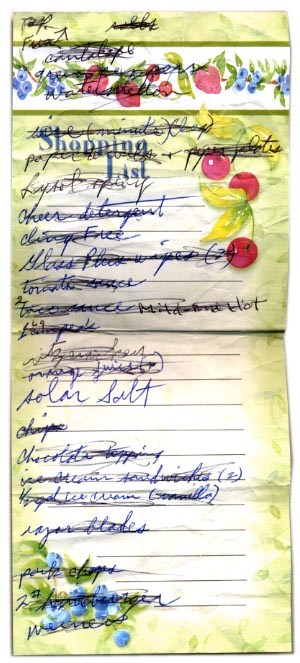 T.P.
Fruit
cantelope
watermellon
rice (minute) (lrg)
Shopping
paper towels + paper plates
List
Lysol spray
Cheer detergent
cling Free
Glass Plus wipes (2)
tomato sauce
2 taco sauce Mild and Hot
orange juice
solar Salt
chips
Chocolate topping
ice cream sandwiches (2)
1/2 gal ice cream (vanilla)
razor blades
pork chops
2# hamburger
weiners